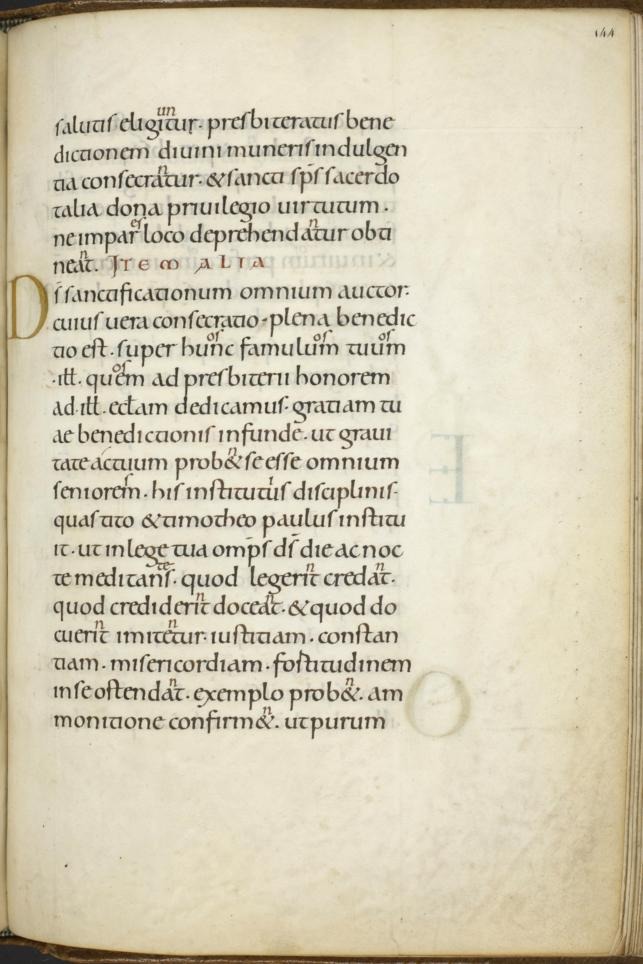 144
salutis eligitur. presbiteratus bene
dictionem diuini muneris indulgen
tia consecratur. & sancti sp̄s sacerdo
talia dona priuilegio uirtutum.
ne impar loco deprehendatur obti
neat. ITEM ALIA
D̄s sanctificationum omnium auctor.
cuius uera consecratio. plena benedic
tio est. super hunc famulum tuum
.ill. quem ad presbiterii honorem
ad .ill. eclam dedicamus. gratiam tu
ae benedictionis infunde. ut graui
tate actuum prob& se esse omnium
seniorem. his institutus disciplinis.
quas tito & timotheo paulus institu
it. ut in lege tua omp̄s d̄s die ac noc
te meditans. quod legerit credat.
quod crediderit doceat. & quod do
cuerit imitetur. iustitiam. constan
tiam. misericordiam. fortitudinem
in se ostendat. exemplo prob&. am
monitione confirm&. ut purum